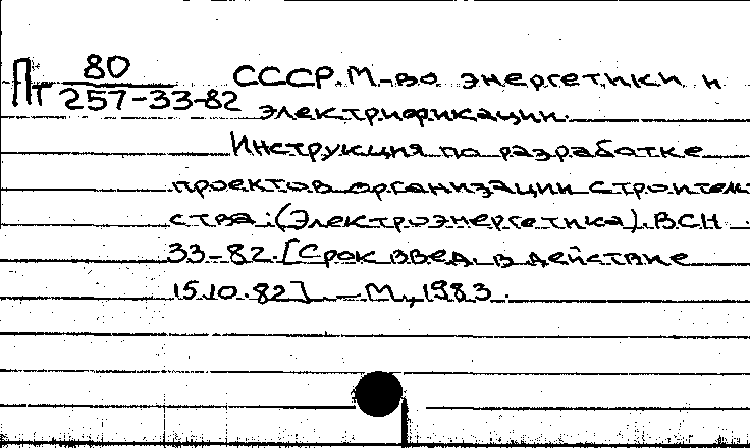 80
Пт 257-33-82
СССР. М-во энергетики и
электрификации.
Инструкция по разработке
проектов организации строитель
ства: (Электроэнергетика). ВСН
33-82. [Срок введ. в действие
15.10.82]. — М., 1983.